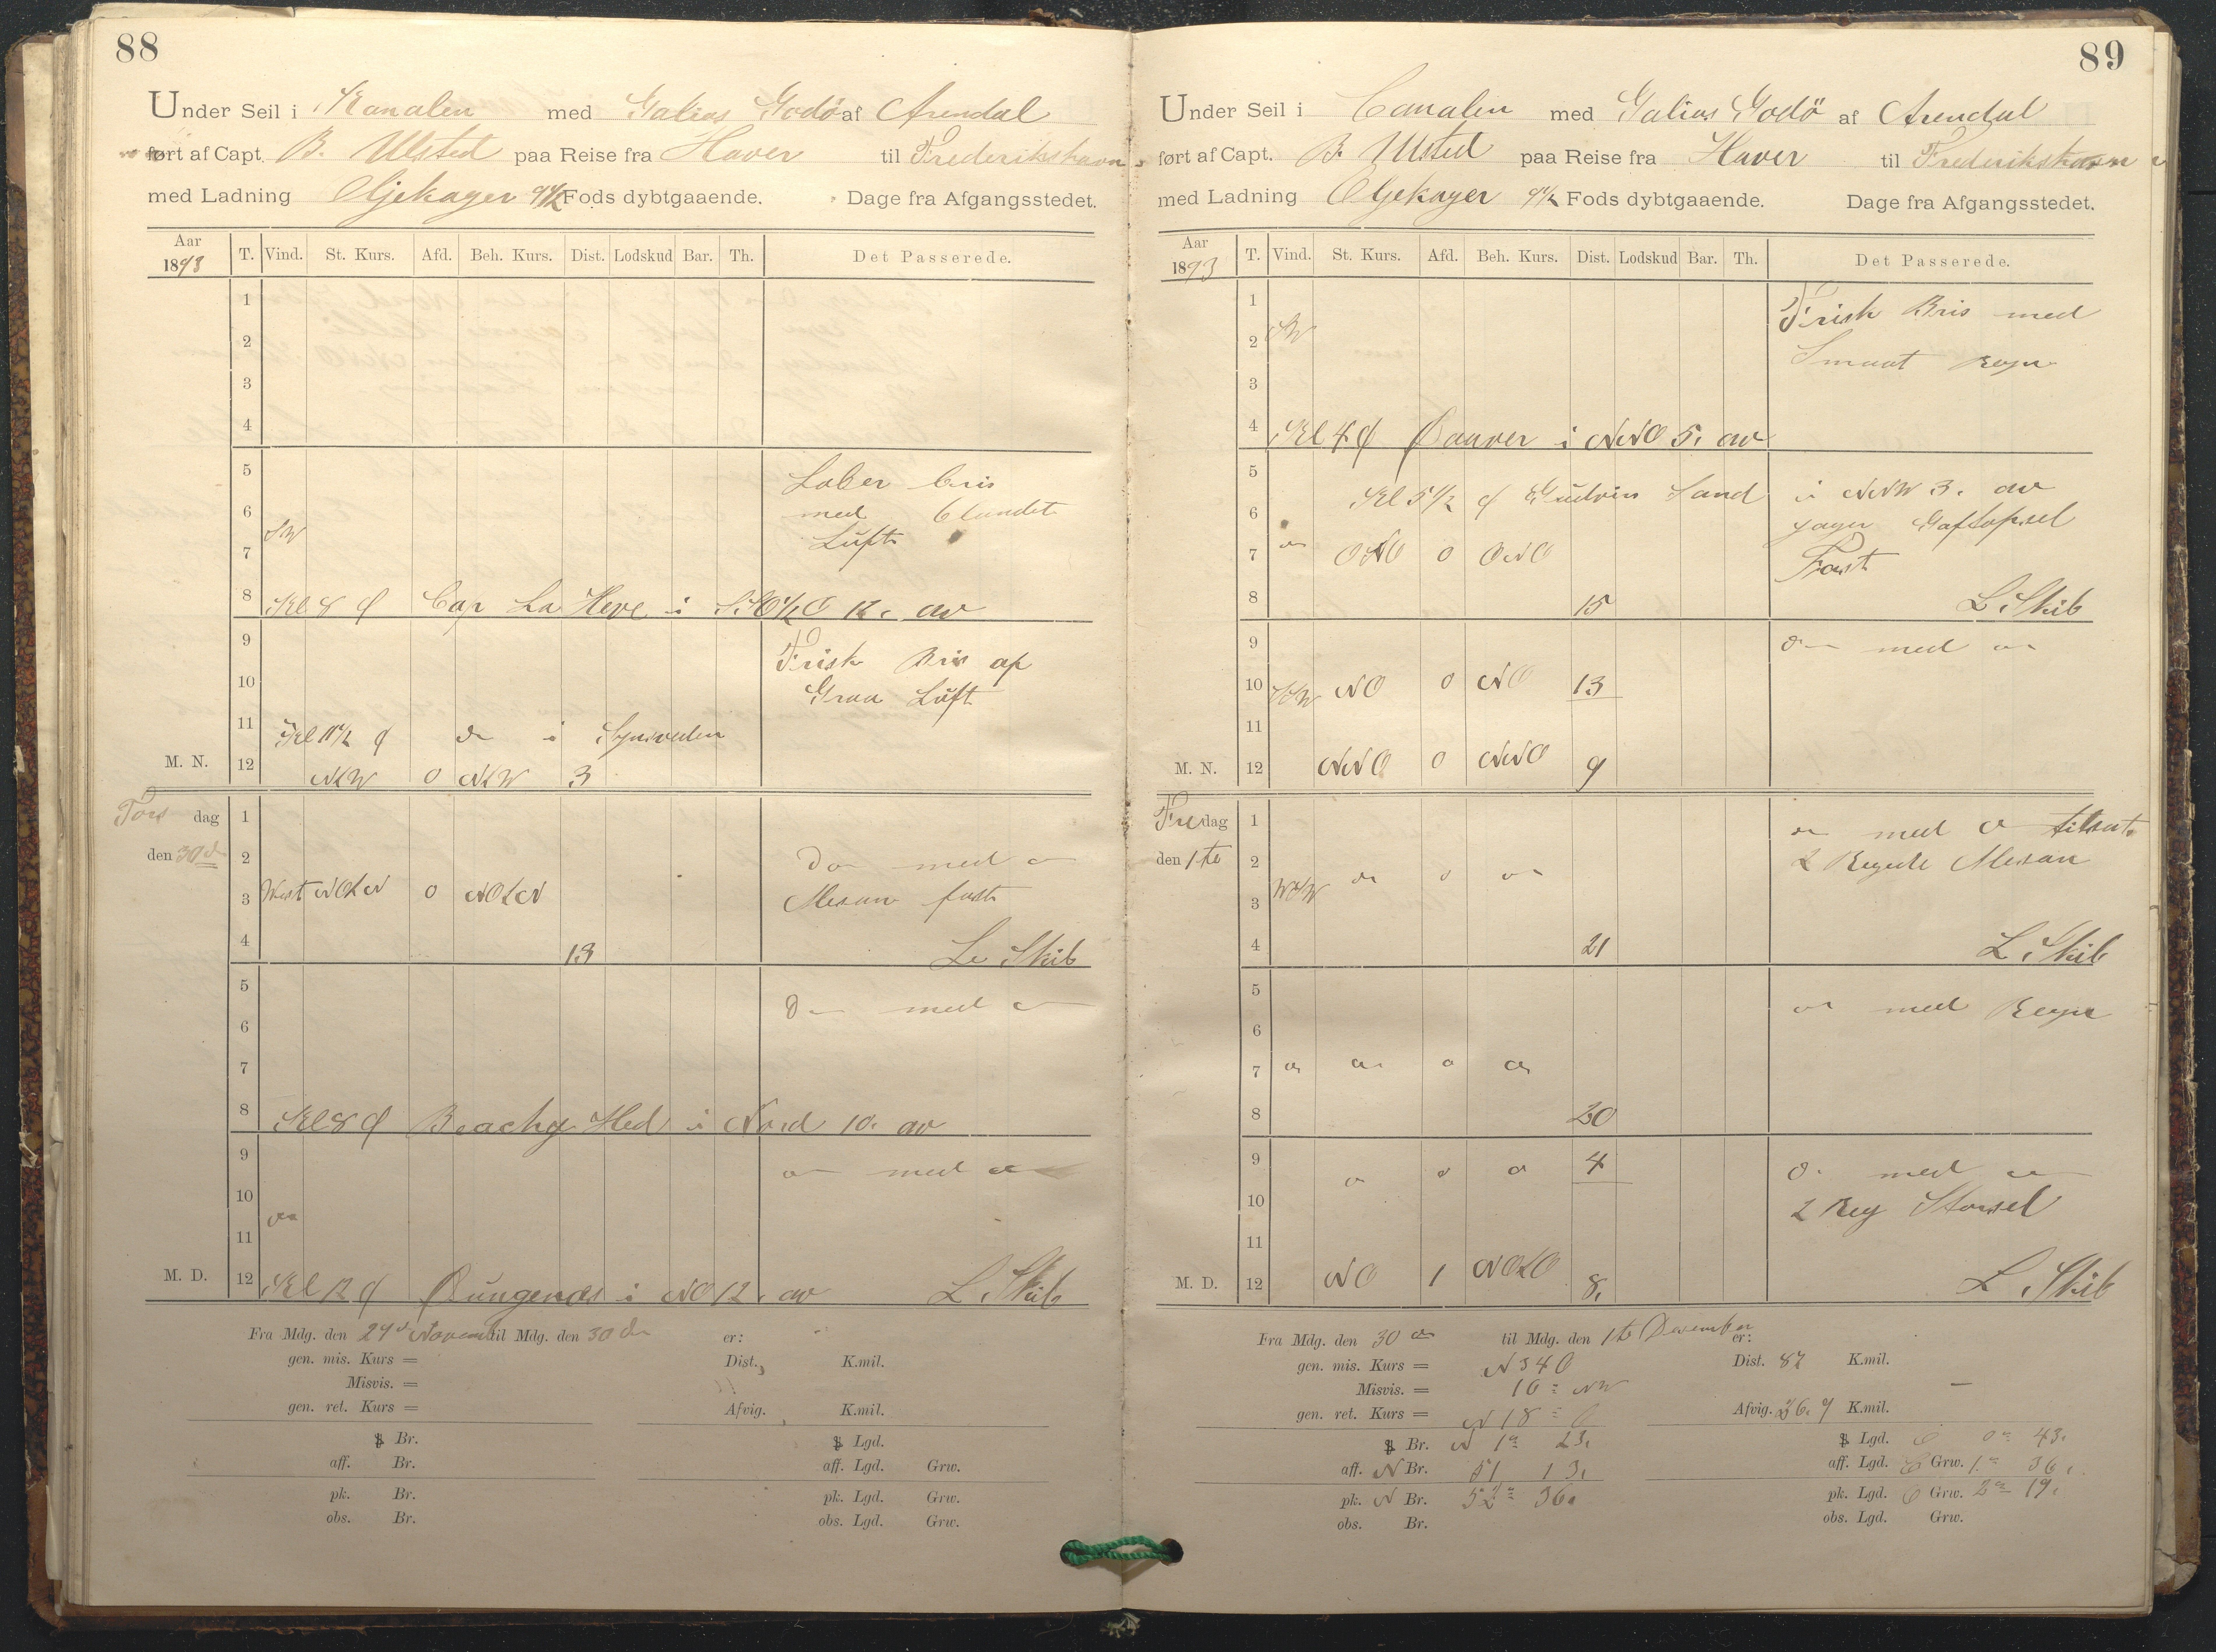 88
Under Seil i Kanalen med Galias Godö af Arendal
ført af Capt. B. Ulsted paa Reise fra Haver til Frederikshavn
med Ladning Oljekager 9 1/2 Fods dybtgaaende. Dage fra Afgangsstedet.
Aar 1893 T. Vind. St. Kurs. Afd. Beh. Kurs. Dist. Lodskud Bar. Th. Det Passerede.
1
2
3
4
5 Laber bris
6 med blandet
SW
7 Luft
8 Kl. 8 Cap La Heve i 12. av
9 Frisk Bris op
10 Graa Luft
11 Kl 11 1/2 i
M. N. 12 NtW 0 NtW 3
Tors dag 1
den 30 2 Do med
3 West NOtN 0 NOtN Mesan fast
4 13 L. Skib
5
med
6
7
8 Kl 8 Beachy Hed i Nord 10. av
9
med
10
11
M. D. 12 Kl 12 Dungenæs i NO 12. av L. Skib
Fra Mdg. den 29 Novemb til Mdg. den 30 er:
gen. mis. Kurs = Dist. K.mil.
Misvis. =
gen. ret. Kurs = Afvig. K.mil.
Br. Lgd.
aff. Br. aff. Lgd. Grw.
pk. Br. pk. Lgd. Grw.
obs. Br. obs. Lgd. Grw.
89
Under Seil i Canalen med Galias Godö af Arendal
ført af Capt. B. Ulsted paa Reise fra Haver til Frederikshavn
med Ladning Oljekager 9 1/2 Fods dybtgaaende. Dage fra Afgangsstedet.
Aar 1893 T. Vind. St. Kurs. Afd. Beh. Kurs. Dist. Lodskud Bar. Th. Det Passerede.
1 Frisk Bris med
2 SW Smaat Regn
3
4 Kl 4 Dauver i NNO 5. av
5 Kl 5 1/2 Sand i NNW 3. av
6 Jager Gaftopsel
7 ONO 0 ONO Fast
8 15 L. Skib
9 med
10 NO 0 NO 13
11
M. N. 12 NNO 0 NNO 9
Fredag 1 med tilsat
den 1te 2 2 Mesan
3 WSW
4 21 L. Skib
5 med Regn
6
7
8 20
9 4 med
10 2 Storsel
11
M. D. 12 NO 1 NOtO 8. L. Skib
Fra Mdg. den 30 til Mdg. den 1te December er:
gen. mis. Kurs = N 34 O Dist. 87 K.mil.
Misvis. = 16 NW
gen. ret. Kurs = N 18 O Afvig. 26.9 K.mil.
Br. N 1° 23. Lgd. O 0° 43.
aff. N Br. 51 13. aff. Lgd. O Grw. 1° 36.
pk. N Br. 52° 36. pk. Lgd. O Grw. 2° 19.
obs. Br. obs. Lgd. Grw.